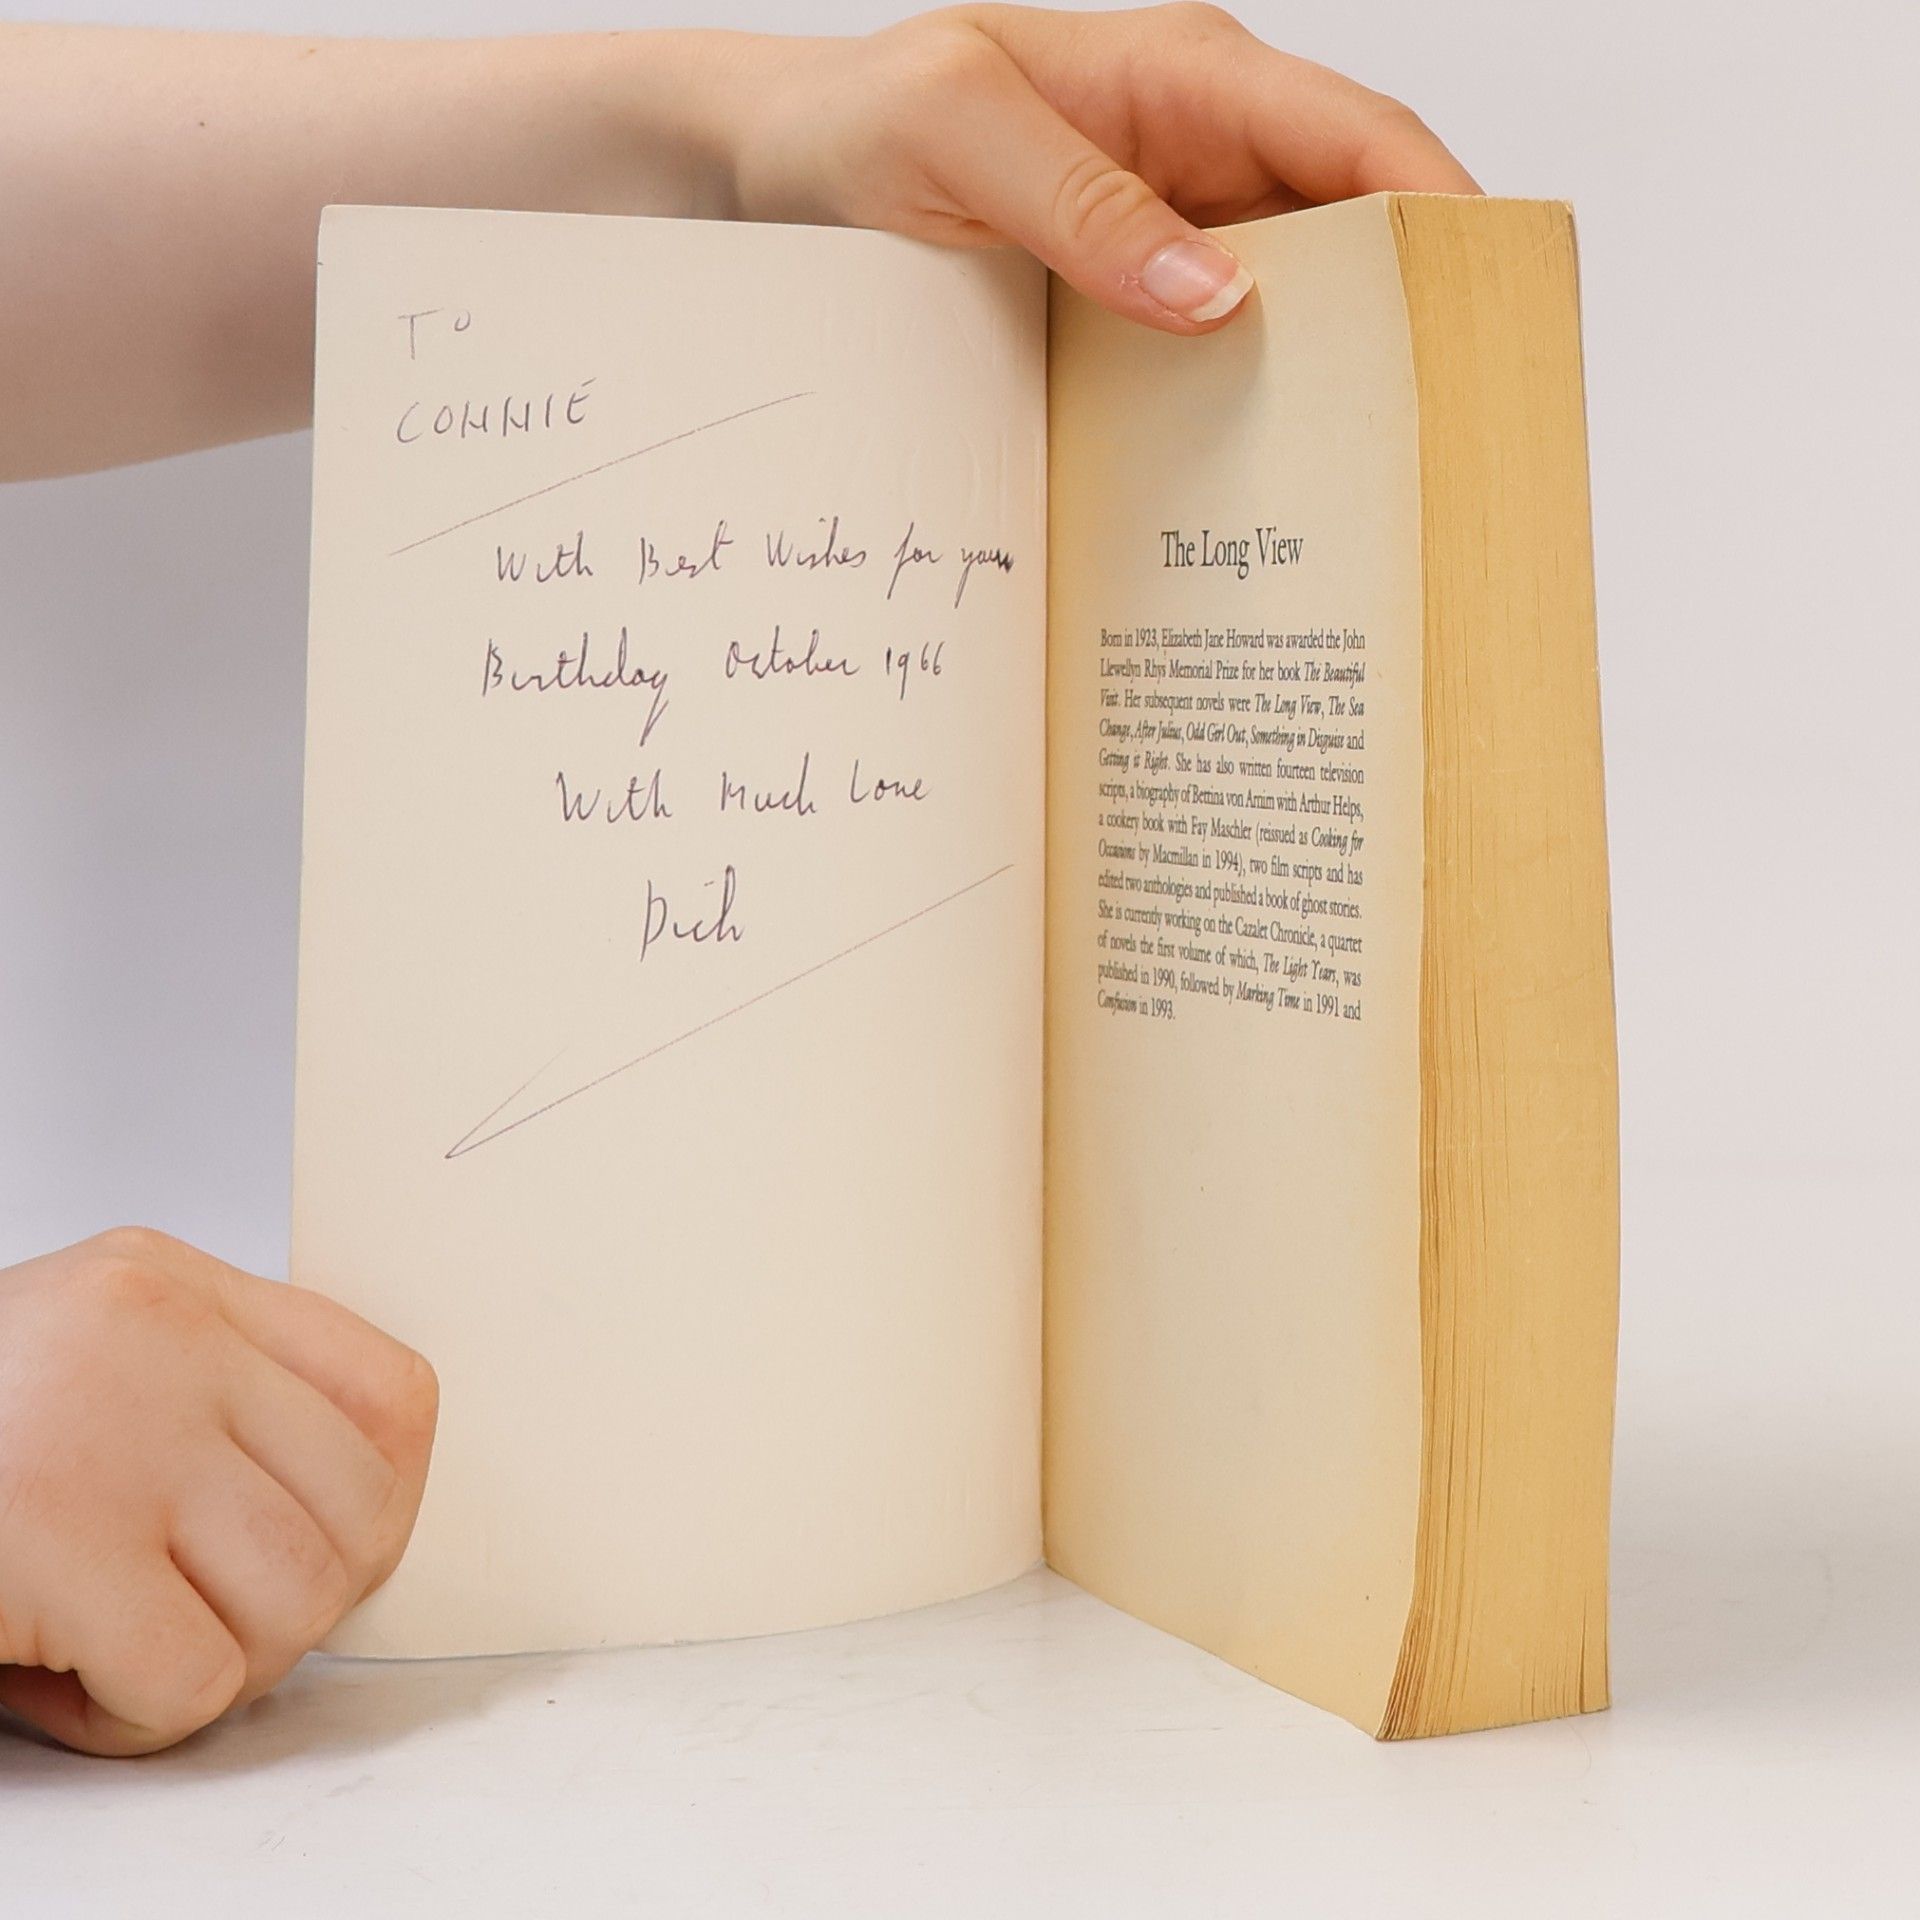 TO
CONNIE
With Best Wishes for your
Birthday October 1966
With Much Love
Dick
The Long View
Born in 1923, Elizabeth Jane Howard was awarded the John
Llewellyn Rhys Memorial Prize for her book The Beautiful
Visit. Her subsequent novels were The Long View, The Sea
Change, After Julius, Odd Girl Out, Something in Disguise and
Getting it Right. She has also written fourteen television
scripts, a biography of Bettina von Arnim with Arthur Helps,
a cookery book with Fay Maschler (reissued as Cooking for
Occasions by Macmillan in 1994), two film scripts and has
edited two anthologies and published a book of ghost stories.
She is currently working on the Cazalet Chronicle, a quartet
of novels the first volume of which, The Light Years, was
published in 1990, followed by Marking Time in 1991 and
Confusion in 1993.